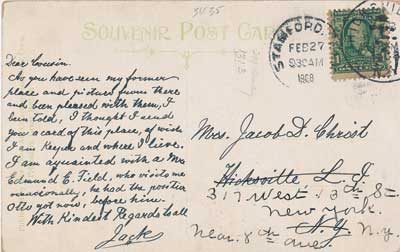 SOUVENIR POST CARD
3V35
STAMFORD,
FEB 27
930AM
1908
Dear Cousin.
As you have seen my former
place and pictures from there
and been pleased with them, I
been told, I thought I send
you a card of this place, of wich
I am Keeper and where I live.
I am aquainted with a Mr
Edmund E. Field, who visits me
occasionally, he had the position
Otto got now, before him.
With Kindest Regards to all
Jack
Mrs. Jacob D. Christ
Hicksville L. I
317 West 13th St
New York.
N.Y. N.Y.
near 8th ave.